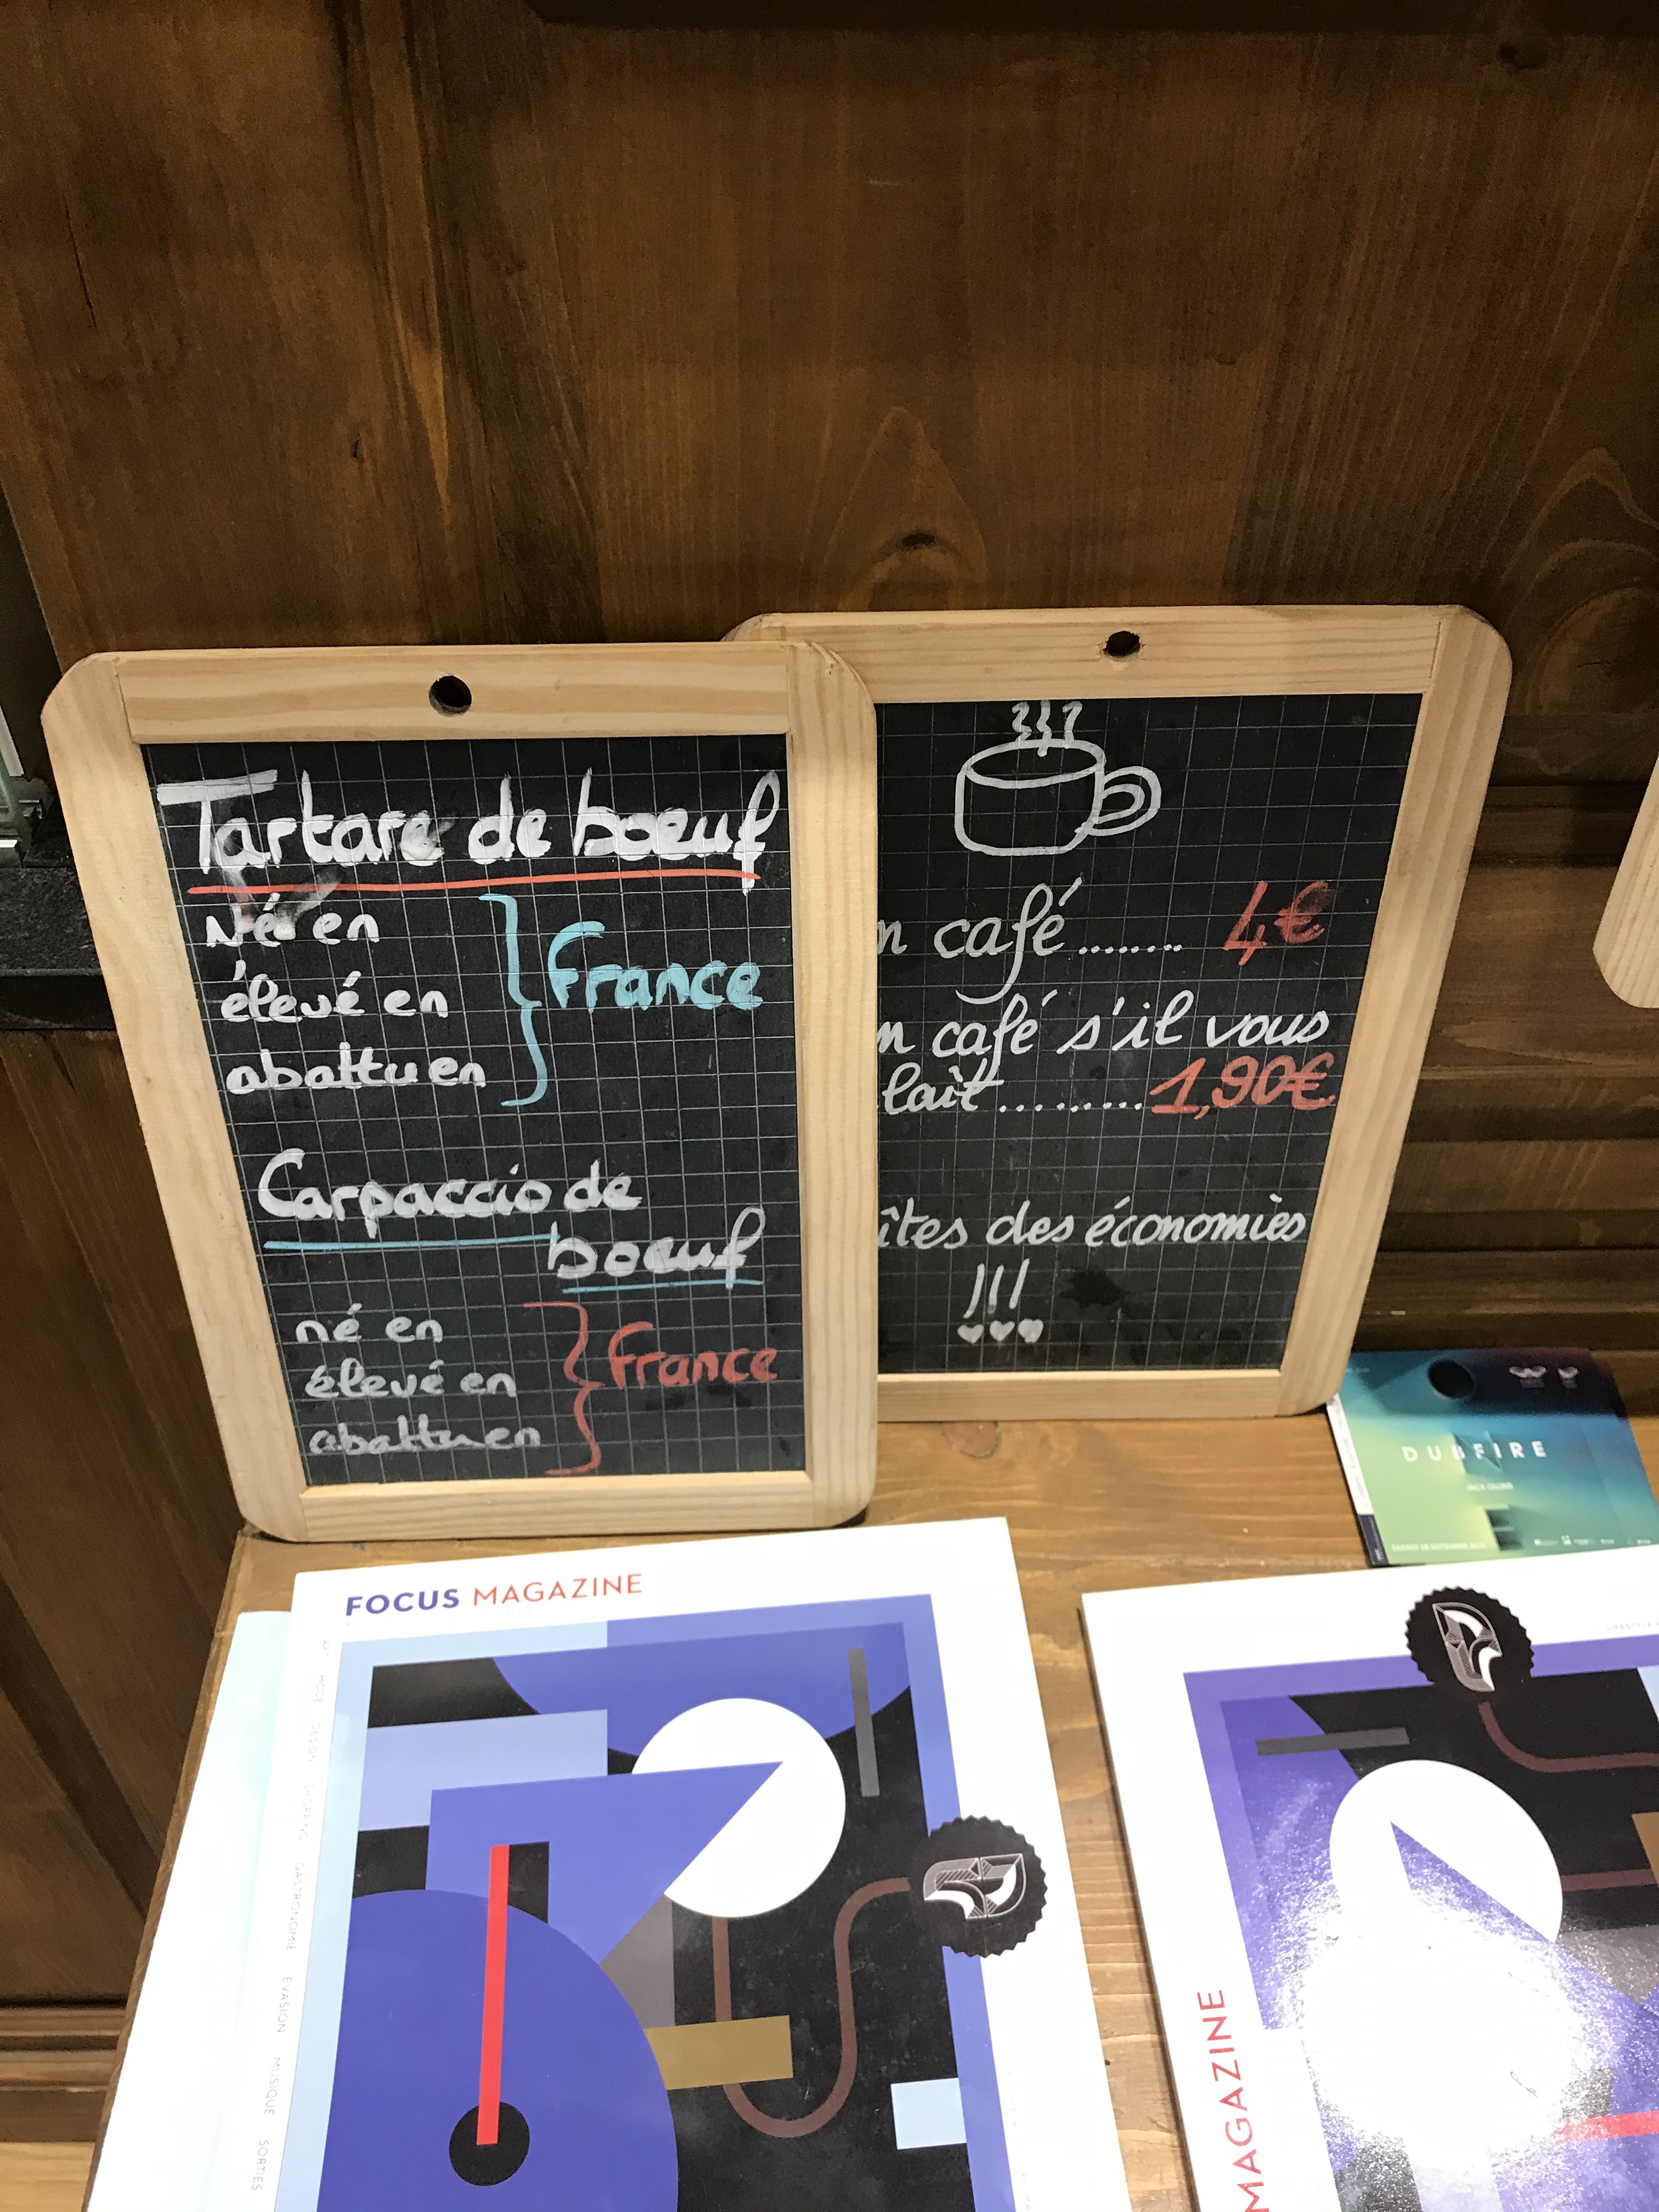 Tartare de boeuf
Né en
élevé en
abattu en
France
Carpaccio de
boeuf
né en
élevé en
abattu en
France
n café ........ 4€
n café s'il vous
lait ......... 1,90€
îtes des économies
!!!
FOCUS MAGAZINE
ART MODE DESIGN SHOPPING GASTRONOMIE EVASION MUSIQUE SORTIES
DUBFIRE
MAGAZINE